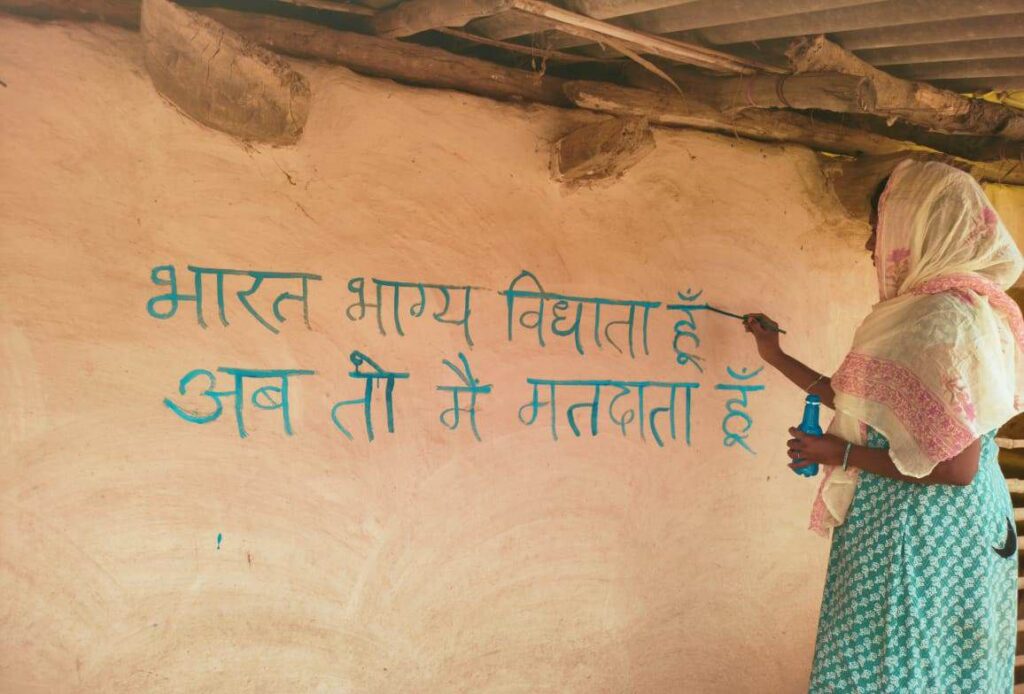 भारत भाग्य विधाता हूँ
अब तो मै मतदाता हूँ